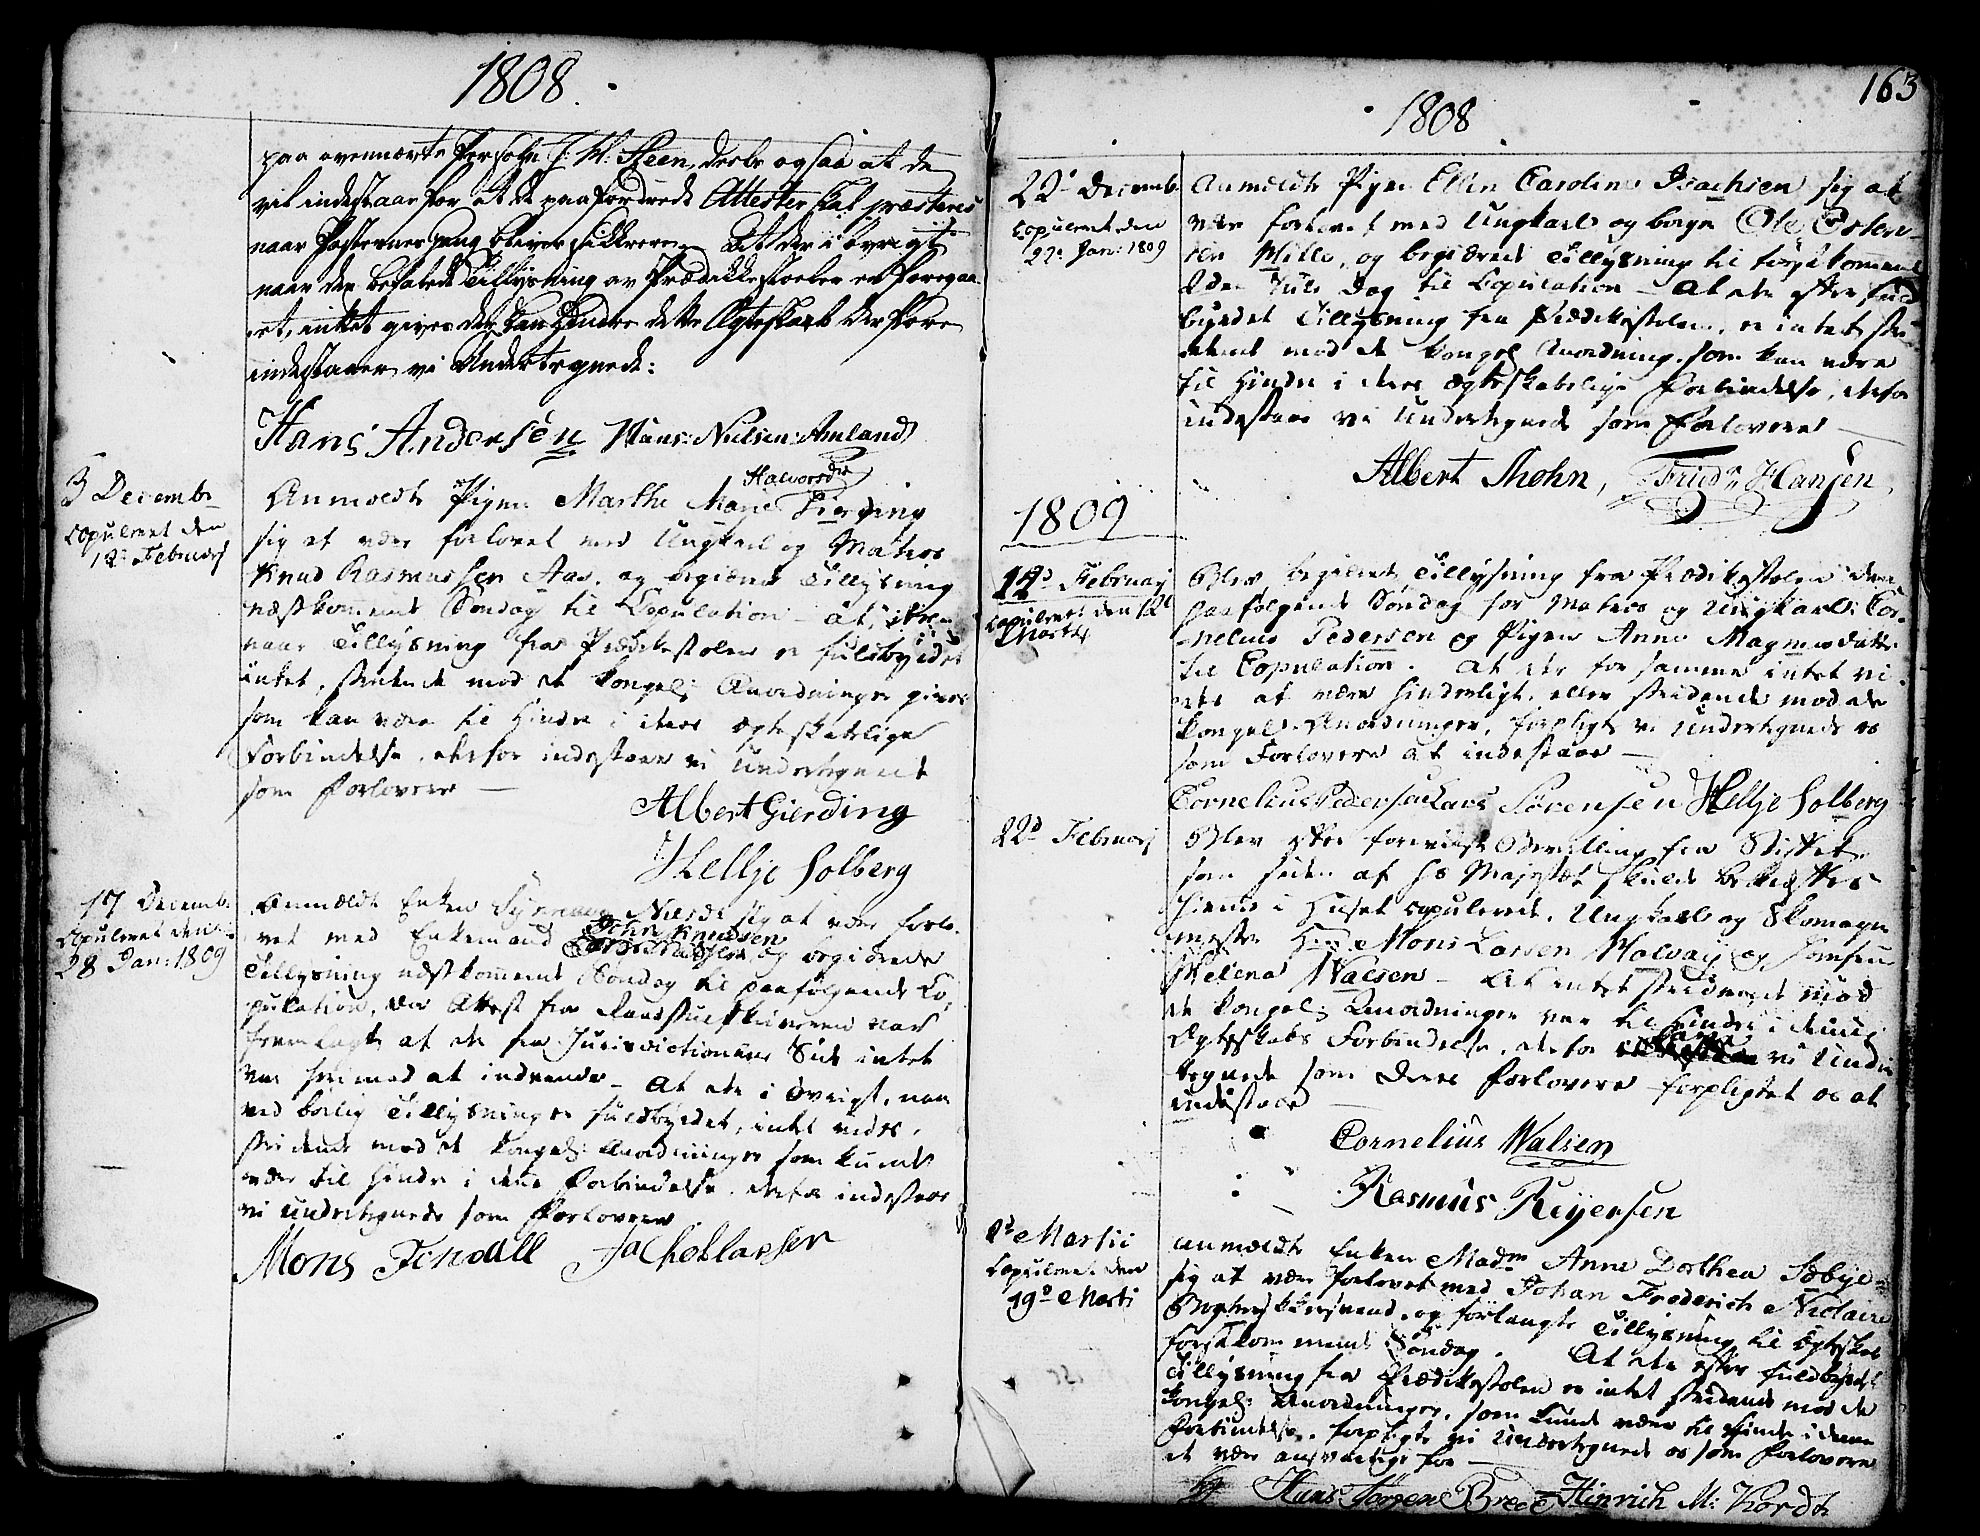 1808.
paa ovennævnte Persohn J: W. Steen, derhos ogsaa at de
vil indestaae for at de paafordrede Attester skal præsteres
naar Posternes gang bliver sikkrere. At der i övrigt
naar den befalede Tillysning av Prædikkestoelen er foregaa-
et, intet gives der kan hindre dette Ægteskab derfore
indestaaer vi Undertegnede:
Hans Andersen Hans: Nielsen: Amland
3 Decembr
Copuleret den
12: Februarj
Anmeldte Pigen Marthe Marie Halvorsdr Gierding
sig at være forlovet med Ungkarl og Matros
Knud Rasmussen Aas, og begierede Tillysning
næstkommende Söndag til Copulation - at,
naar Tillysning fra Prædikestolen er fuldbyrdet
intet, stridende mod de kongel: Anordninger gives
som kan være til Hinder i deres ægteskabelige
Forbindelse, derfor indestaaer vi Undertegnede
som Forlovere —
Albert Gierding
Hellje Solberg
17 Decembr
Copuleret den
28 Jan: 1809
Anmeldte Enken Nielsdr sig at være forlo-
vet med Enkemand John Knudsen og begierede
Tillysning næstkommende Söndag til paafölgende Co-
pulation, der Attest fra Skifteskriveren var
fremlagt at de fra Jurisdictionens Side intet
var herimod at indvende - At der i övrigt, naar
ved börlig Tillysning er fuldbyrdet, intet vides,
stridende mod de kongel: Anordninger som kunde
være til Hinder i denne Forbindelse, derfor indestaae
vi Undertegnede som Forlovere
Mons Tendall
163
1808
22d Decemb
Copuleret den
22: Jan: 1809
Anmeldte Pigen Ellen Caroline Isachsen sig at
være forlovet med Ungkarl og borger Ole
Mille, og begierede Tillysning til förstkommende
2den Jule Dag til Copulation - at der efter fuld-
byrdet Tillysning fra Prædikestolen, er intet stri-
dende mod de kongel: Anordning, som kan være
til Hinder i deres Ægteskabelige Forbindelse, derfor
indestaae vi Undertegnede som Forlovere —
Albert Thohn, Fridr Hansen
1809
12d Februarj
Copuleret den 12te
Marti
Blev begieret Tillysning fra Prædikestolen den
paafölgende Söndag for Matros og Ungkarl: Cor-
nelius Pedersen og Pigen Anne Magnusdatter
til Copulation. At der for samme intet vi-
des at være hinderligt, eller stridende mod de
kongel: Anordninger, forpligte vi Undertegnede os
som Forlovere at indestaae —
Cornelius Pedersen Lars Sörensen Hellje Solberg
22d Februarj
Blev efter foreviiste Bevilling fra Stiftet
som siden af Hs Majestæt skulde bekræftes
hiemme i Huset copulerede, Ungkarl og Skomager
mester Hr Mons Larsen Malvaij og Jomfrue
Helena Walsen - At intet stridende mod
de kongel: Anordninger var til Hinder i denne
Ægteskabs Forbindelse, derfor vi Under-
tegnede som deres Forlovere forpligtet os at
indestaae —
Cornelius Walsen
Rasmus Reijersen
2d Martii
Copuleret den
19d Marti
Anmeldte Enken Madm Anne Dorthea Sæbye
sig at være forlovet med Johan Frederich Nicolai
og forlangte Tillysning til Ægteskab
förstkommende Söndag. At der efter fuldbyrdet
Tillysning fra Prædikestolen er intet stridende mod de
kongel: Anordninger, som kunde være til Hinder i denne
Forbindelse, forpligte vi Undertegnede os som Forlovere
at være ansvarlige for —
Hans Jörgen Brede Hinrich M: Kordt